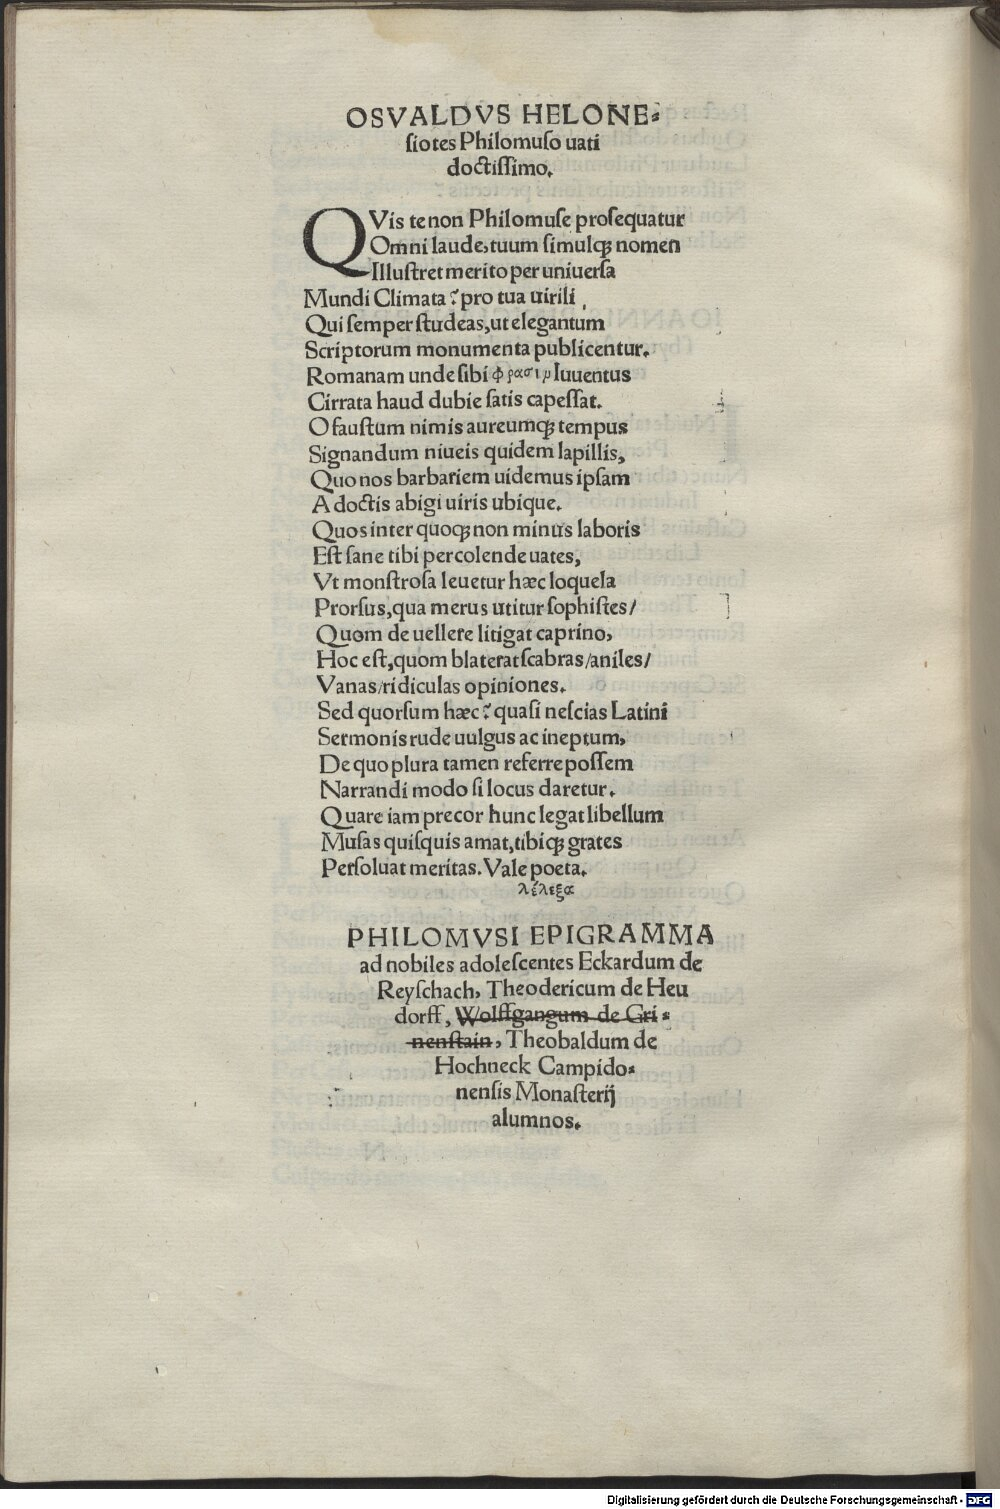 OSVALDVS HELONE⸗
ſiotes Philomuſo uati
doctiſſimo.
QVis te non Philomuſe proſequatur
Omni laude, tuum ſimulqꝫ nomen
Illuſtret merito per uniuerſa
Mundi Climata? pro tua uirili
Qui ſemper ſtudeas, ut elegantum
Scriptorum monumenta publicentur.
Romanam unde ſibi φρασιν Iuuentus
Cirrata haud dubie ſatis capeſſat.
O fauſtum nimis aureumqꝫ tempus
Signandum niueis quidem lapillis,
Quo nos barbariem uidemus ipſam
A doctis abigi uiris ubique.
Quos inter quoqꝫ non minus laboris
Eſt ſane tibi percolende uates,
Vt monſtroſa leuetur hæc loquela
Prorſus, qua merus utitur ſophiſtes/
Quom de uellere litigat caprino,
Hoc eſt, quom blaterat ſcabras/aniles/
Vanas/ridiculas opiniones.
Sed quorſum hæc? quaſi neſcias Latini
Sermonis rude uulgus ac ineptum,
De quo plura tamen referre poſſem
Narrandi modo ſi locus daretur.
Quare iam precor hunc legat libellum
Muſas quiſquis amat, tibiqꝫ grates
Perſoluat meritas. Vale poeta.
λέλεξα
PHILOMVSI EPIGRAMMA
ad nobiles adoleſcentes Eckardum de
Reyſchach, Theodericum de Heu
dorff, Wolffgangum de Gri⸗
nenſtain, Theobaldum de
Hochneck Campido⸗
nenſis Monaſterij
alumnos.
Digitalisierung gefördert durch die Deutsche Forschungsgemeinschaft - DFG